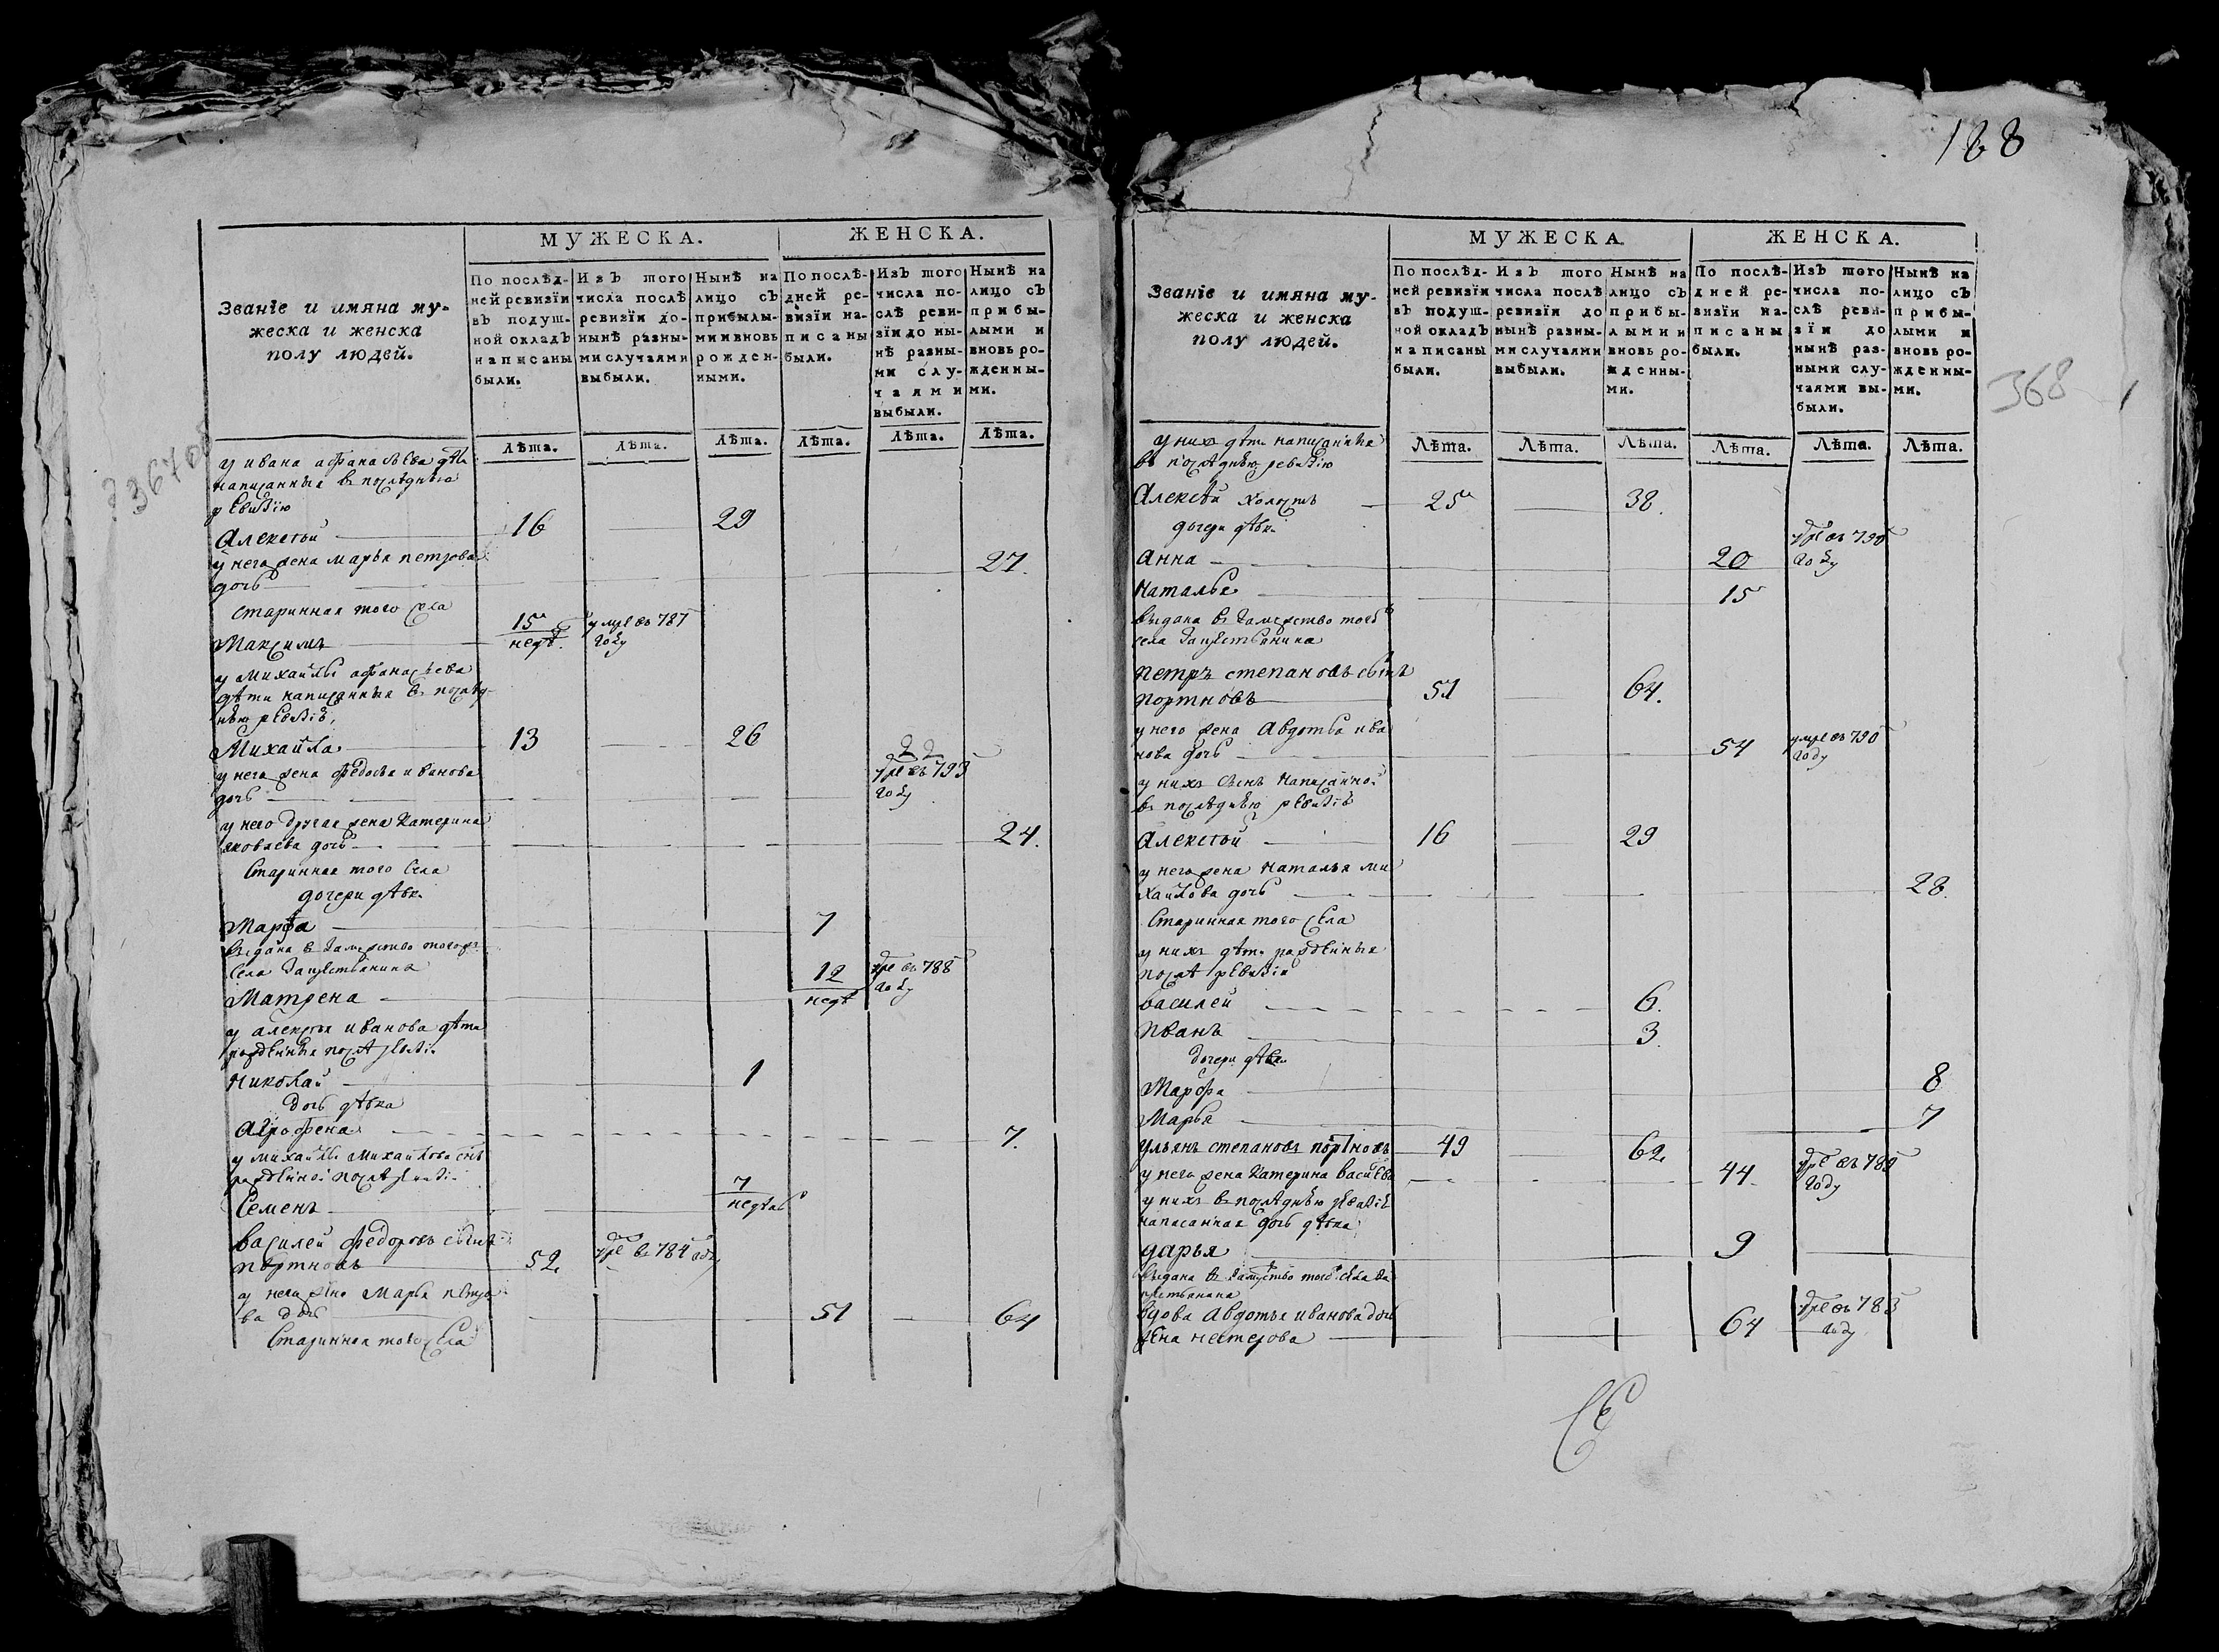 188
368
МУЖЕСКА.
ЖЕНСКА.
Званіе и имяна му-
жеска и женска
полу людей.
По послѣд-
ней ревизіи
въ подуш-
ной окладъ
написаны
были.
Изъ того
числа послѣ
ревизіи до-
нынѣ разны-
ми случаями
выбыли.
Нынѣ на
лицо съ
прибылы-
ми и вновь
рожден-
ными.
По послѣ-
дней ре-
визіи на-
писаны
были.
Изъ того
числа по-
слѣ реви-
зіи до ны-
нѣ разны-
ми слу-
чаями
выбыли.
Нынѣ на
лицо съ
прибы-
лыми и
вновь ро-
жденны-
ми.
Лѣта. Лѣта. Лѣта. Лѣта. Лѣта. Лѣта.
у ивана афанасьева дѣти
написанныя в послѣднею
ревизію
Алексей 16 29
у него жена марья петрова
дочь 27.
старинная того села
Максимъ 15 недѣ. умре въ 787 году
у михайлы афанасьева
дѣти написанныя в послѣд-
нѣю ревизіѣ,
Михайла 13 26
у него жена федосья иванова
дочь 22 умре въ 793 году
у него другая жена катерина
яковлева дочь 24.
Старинная того села
дочери дѣвки
Марфа 7
выдана в замужство тогожъ
села за крестьянина
Матрена 12 недѣ умре въ 788 году
у алексѣя иванова дѣти
рожденныя послѣ ревизіи
Николай 1
дочь дѣвка
Агрофена 7.
у михайлы михайлова сынъ
рожденной послѣ ревизіи
Семенъ 7 недѣль
василей федоровъ сынъ
портновъ 52 умре в 784 году
у него жена Марья петро
ва дочь 51 64
Старинная того села
МУЖЕСКА.
ЖЕНСКА.
Званіе и имяна му-
жеска и женска
полу людей.
По послѣд-
ней ревизіи
въ подуш-
ной окладъ
написаны
были.
Изъ того
числа послѣ
ревизіи до
нынѣ разны-
ми случаями
выбыли.
Нынѣ на
лицо съ
прибы-
лыми и
вновь ро-
жденны-
ми.
По послѣ-
дней ре-
визіи на-
писаны
были.
Изъ того
числа по-
слѣ реви-
зіи до
нынѣ раз-
ными слу-
чаями вы-
были.
Нынѣ на
лицо съ
прибы-
лыми и
вновь ро-
жденны-
ми.
Лѣта. Лѣта. Лѣта. Лѣта. Лѣта. Лѣта.
у нихъ дѣти написанные
въ послѣднею ревизію
Алексѣй холостъ 25 38.
дочери дѣвки
Анна 20 умре въ 790 году
Наталья 15
выдана в замужство тогожъ
села за крестьянина
петръ степановъ сынъ
портновъ 51 64.
у него жена Авдотья ива
нова дочь 54 умре въ 790 году
у нихъ сынъ написанной
в послѣднѣю ревизіѣ
алексей 16 29
у него жена Наталья ми
хайлова дочь 28.
Старинная того села
у нихъ дѣти рожденныя
послѣ ревизіи
василей 6.
иванъ 3.
дочери дѣвки
Марфа 8
Марья 7
ульянъ степановъ портновъ 49 62
у него жена катерина васильева 44. умре въ 789 году
у нихъ в послѣднею ревизіѣ
написанная дочь дѣвка
дарья 9
выдана в замужство того села за
крестьянина
вдова Авдотья иванова дочь
жена нестерова 64 умре въ 783 году